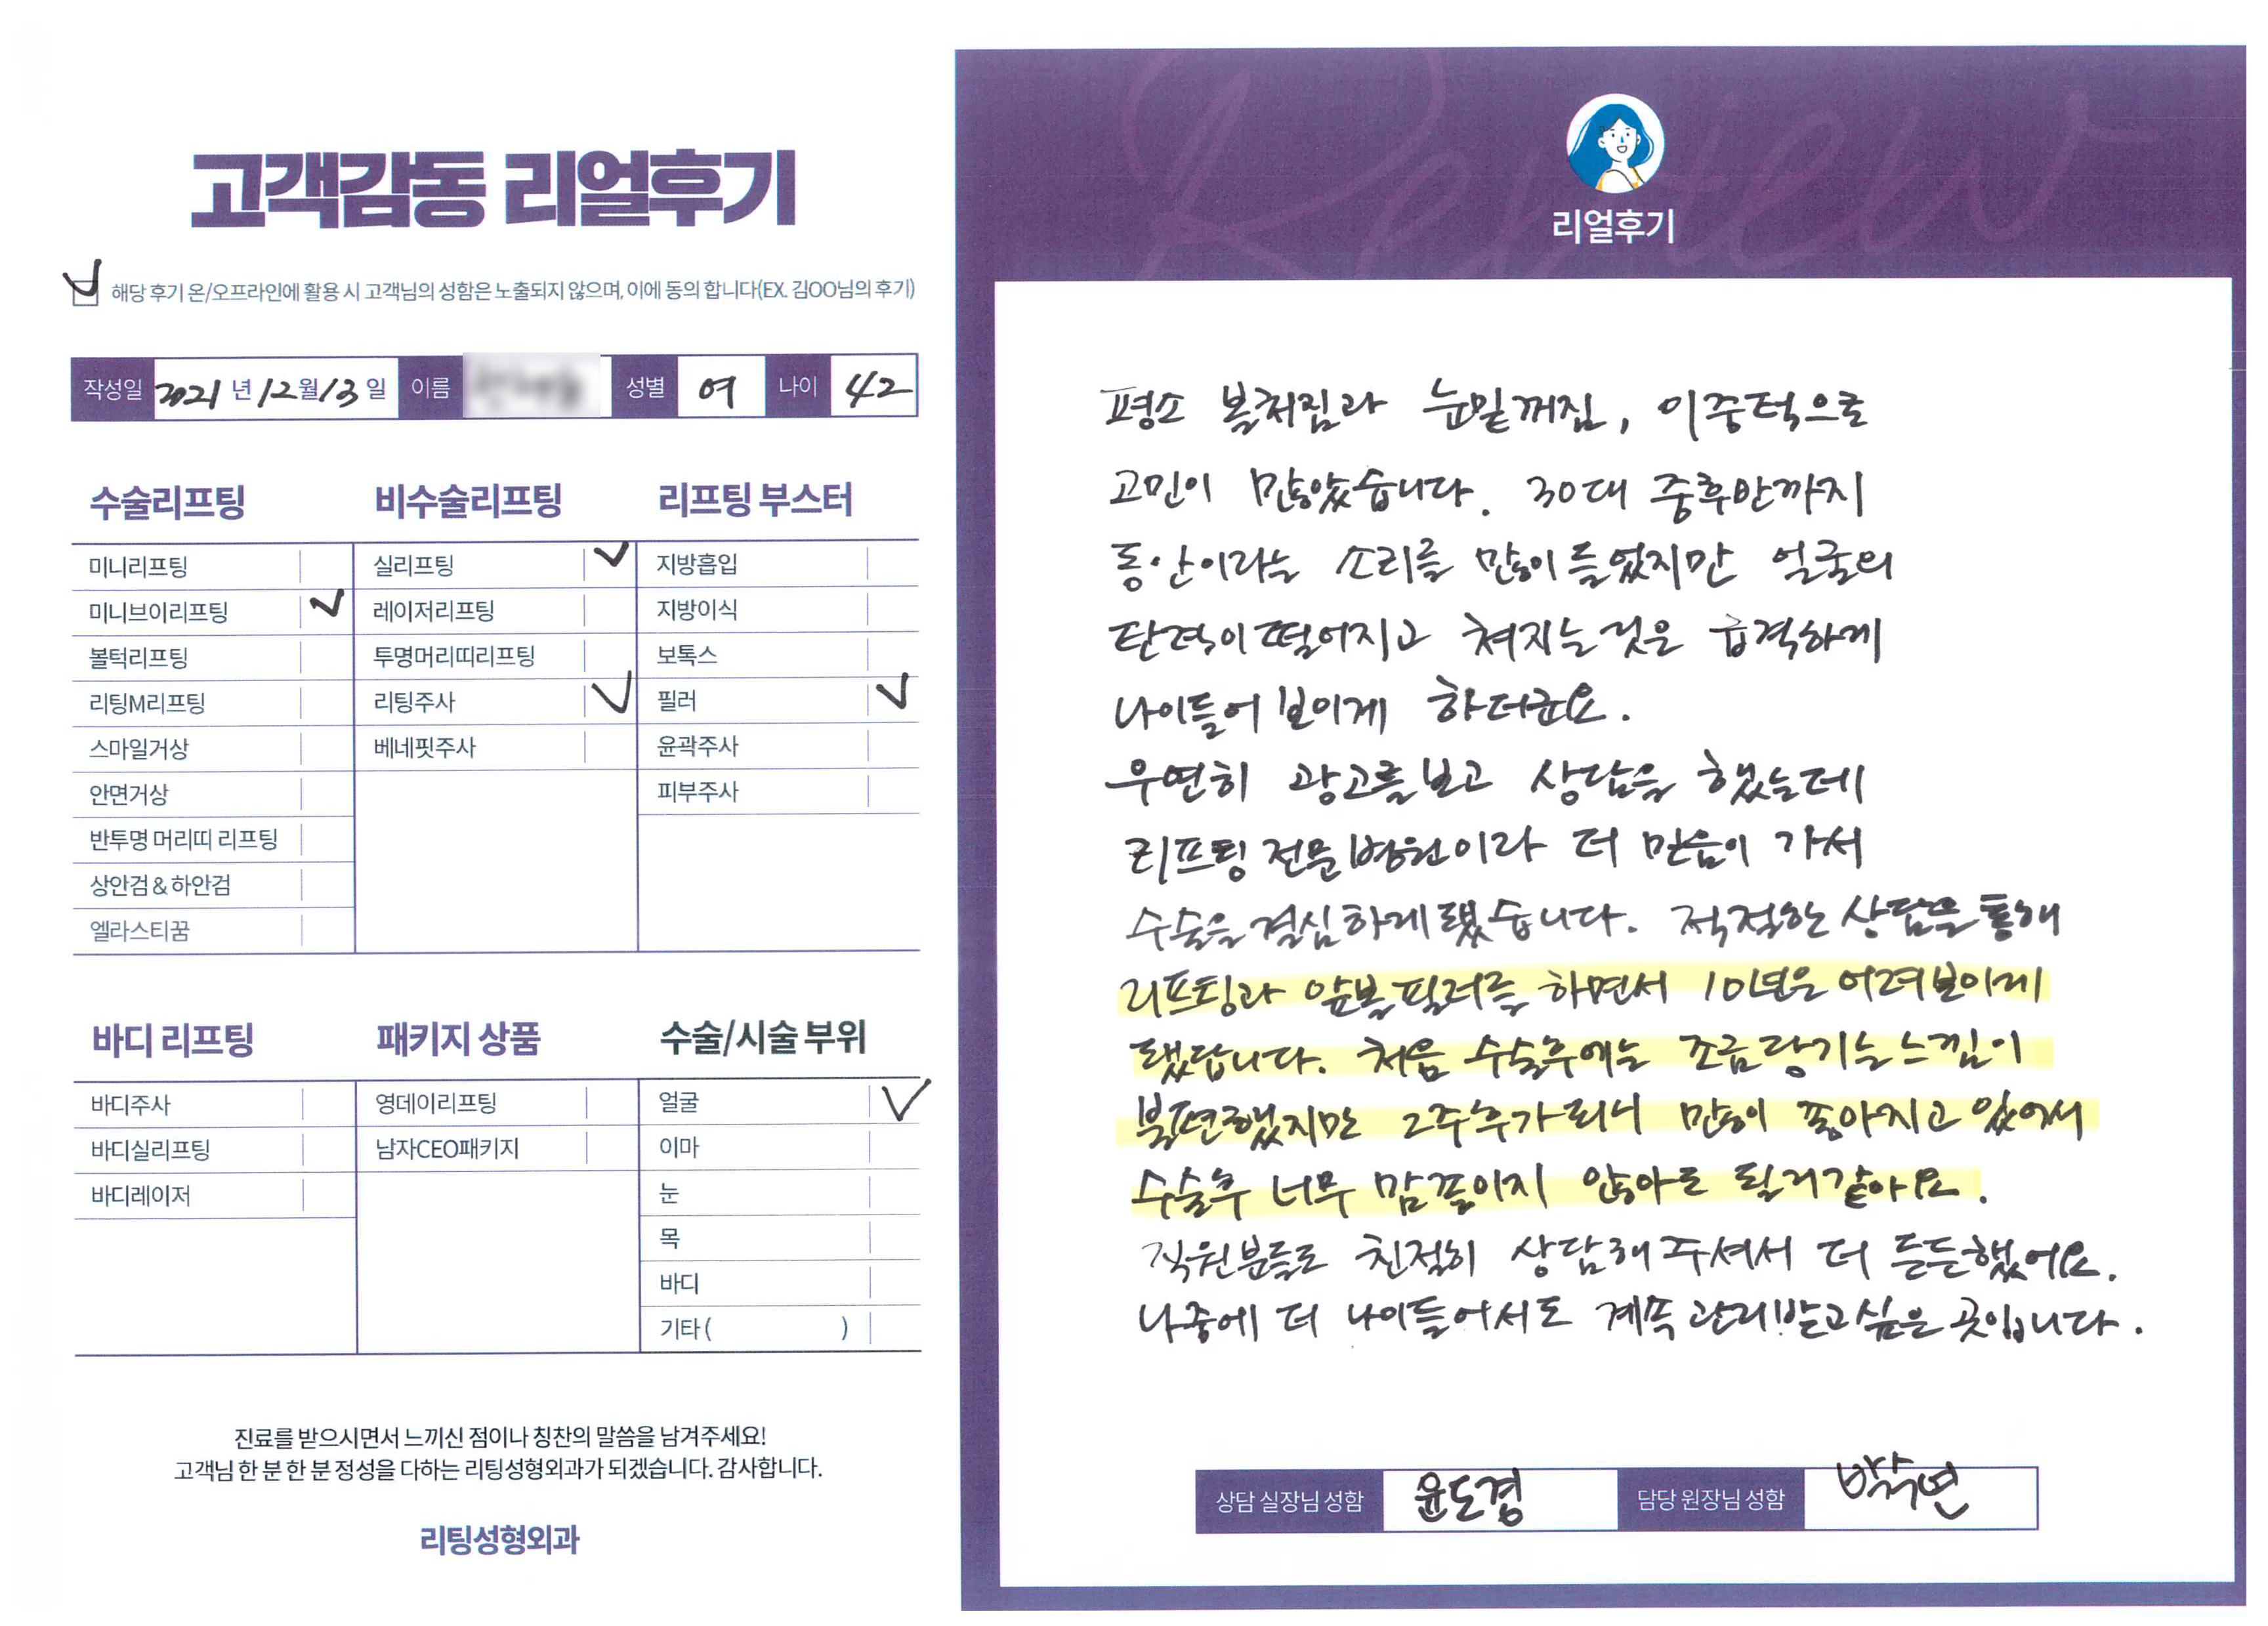 고객감동 리얼후기
해당 후기 온/오프라인에 활용 시 고객님의 성함은 노출되지 않으며, 이에 동의 합니다(EX. 김OO님의 후기)
작성일 2021 년 12 월 13 일 이름 성별 여 나이 42
수술리프팅 비수술리프팅 리프팅 부스터
미니리프팅 실리프팅 지방흡입
미니브이리프팅 레이저리프팅 지방이식
볼턱리프팅 투명머리띠리프팅 보톡스
리팅M리프팅 리팅주사 필러
스마일거상 베네핏주사 윤곽주사
안면거상 피부주사
반투명 머리띠 리프팅
상안검 & 하안검
엘라스티꿈
바디 리프팅 패키지 상품 수술/시술 부위
바디주사 영데이리프팅 얼굴
바디실리프팅 남자CEO패키지 이마
바디레이저 눈
목
바디
기타 ( )
진료를 받으시면서 느끼신 점이나 칭찬의 말씀을 남겨주세요!
고객님 한 분 한 분 정성을 다하는 리팅성형외과가 되겠습니다. 감사합니다.
리팅성형외과
Review
리얼후기
평소 볼처짐과 눈밑꺼짐, 이중턱으로
고민이 많았습니다. 30대 중후반까지
동안이라는 소리를 많이 들었지만 얼굴의
탄력이 떨어지고 쳐지는것은 급격하게
나이들어 보이게 하더군요.
우연히 광고를 보고 상담을 했는데
리프팅 전문병원이라 더 믿음이 가서
수술을 결심하게 됐습니다. 적절한 상담을 통해
리프팅과 앞볼필러를 하면서 10년은 어려보이게
됐답니다. 처음 수술후에는 조금 당기는 느낌이
불편했지만 2주후가 되니 많이 좋아지고 있어서
수술후 너무 맘졸이지 않아도 될거같아요.
직원분들도 친절히 상담해 주셔서 더 든든했어요.
나중에 더 나이들어서도 계속 관리받고 싶은 곳입니다.
상담 실장님 성함 윤도경 담당 원장님 성함 박수연